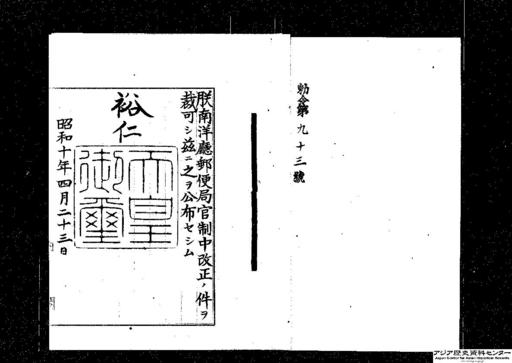 勅令第九十三號
朕南洋廳郵便局官制中改正ノ件ヲ
裁可シ茲ニ之ヲ公布セシム
裕仁
天皇
御璽
昭和十年四月二十三日
アジア歴史資料センター
Japan Center for Asian Historical Records